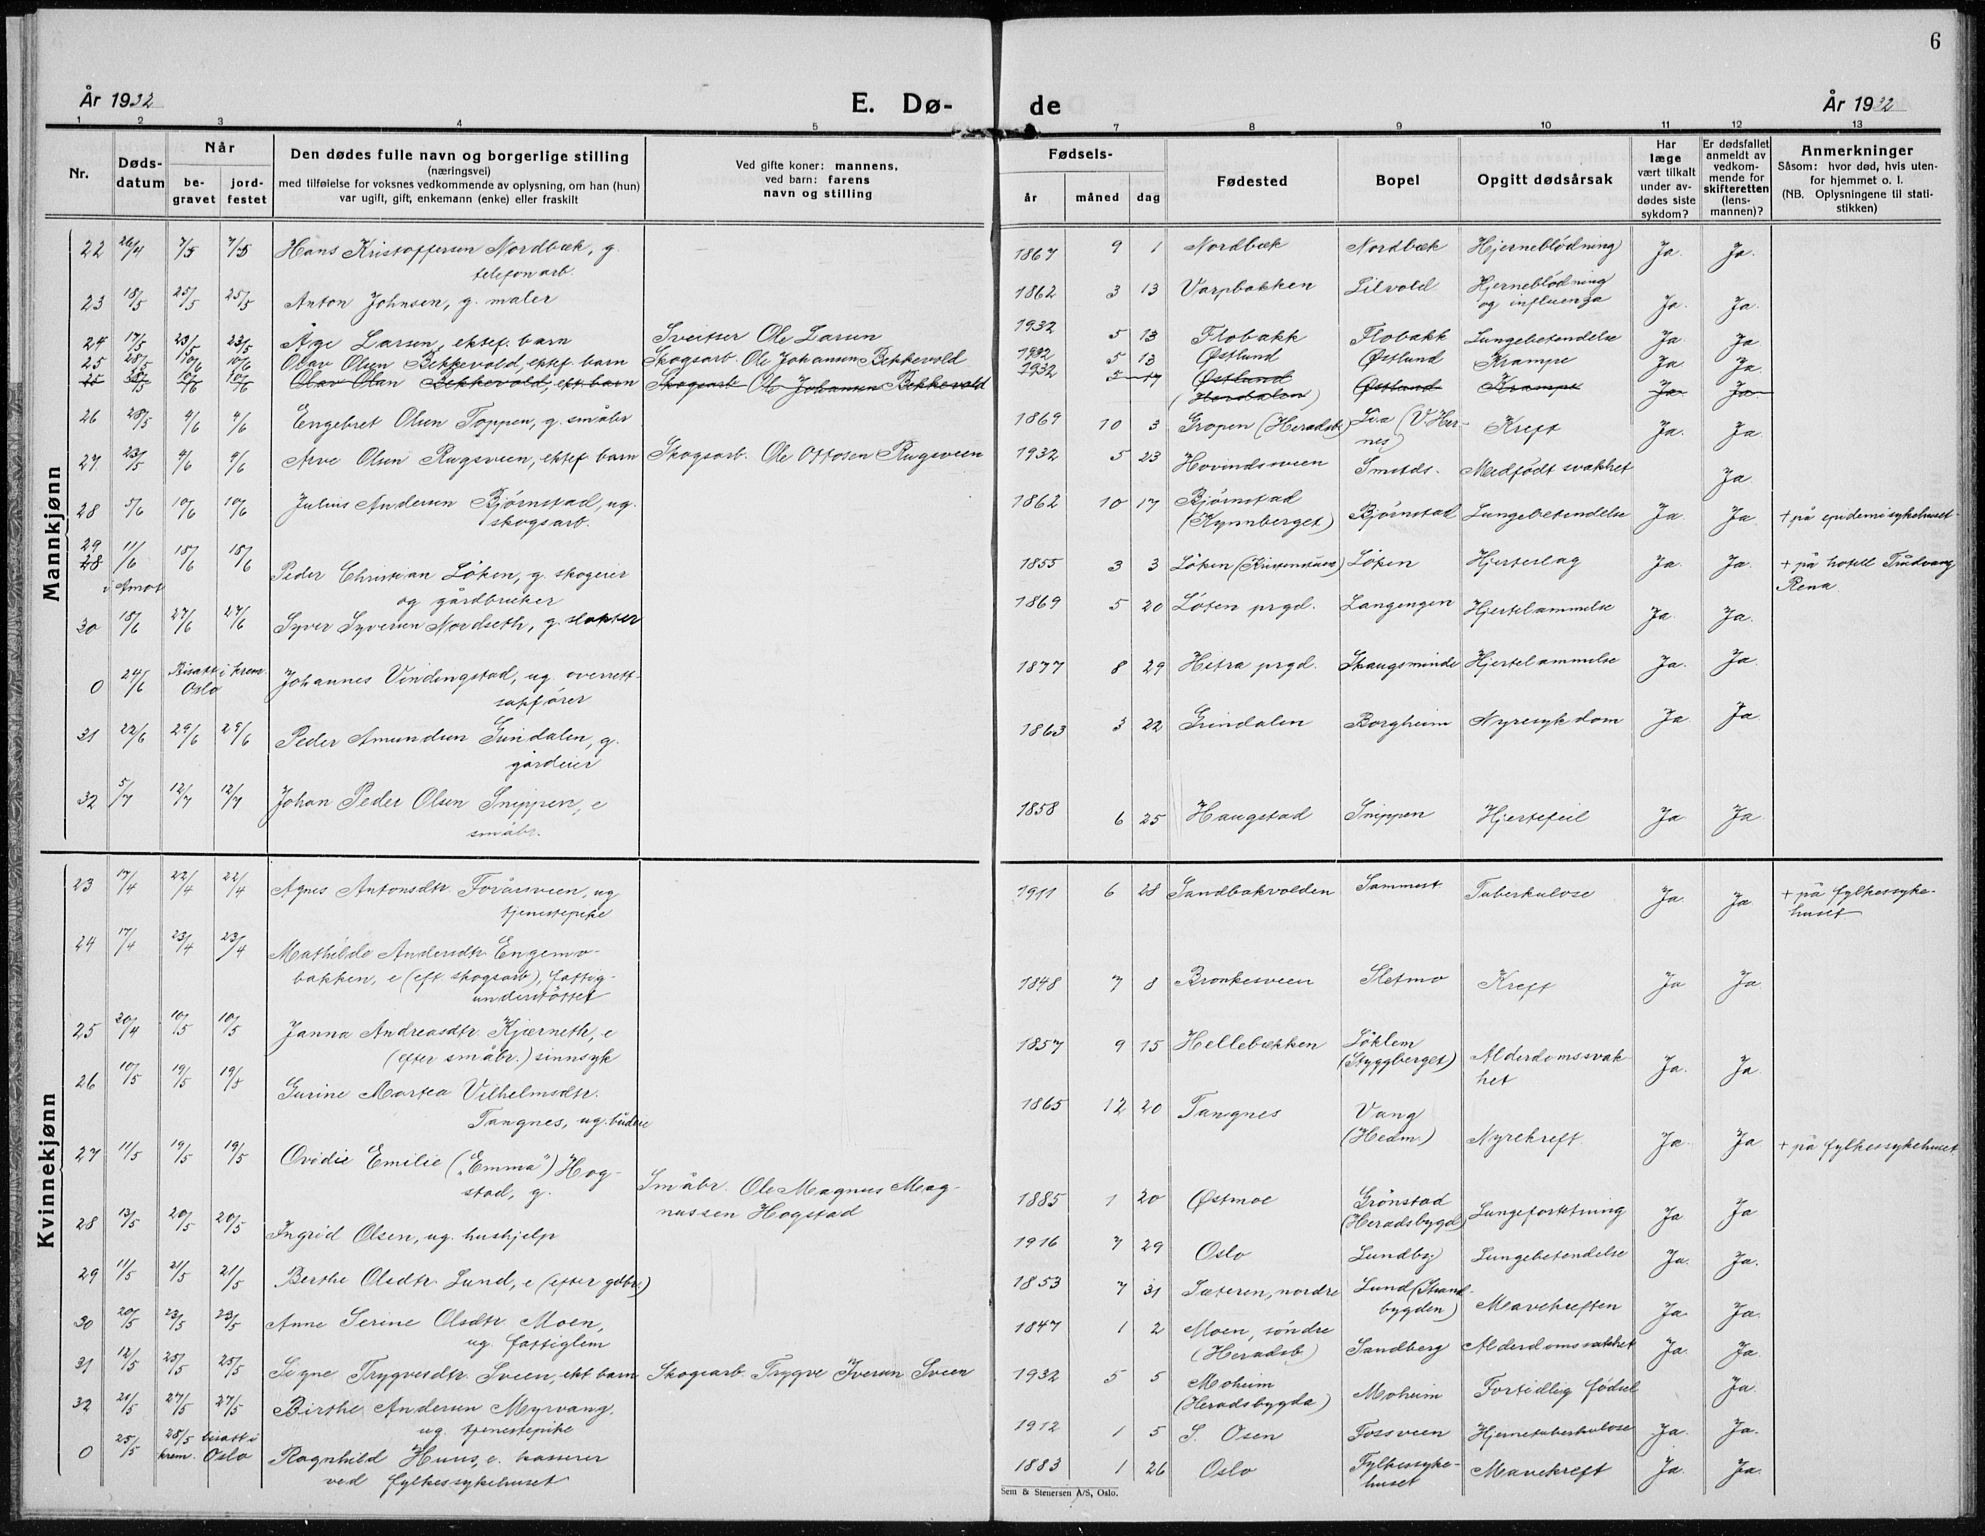 6
År 1932
E. Dø-
de
År 1932
1 2 3 4 5 7 8 9 10 11 12 13
Nr.
Døds-
datum
Når
be-
gravet
jord-
festet
Den dødes fulle navn og borgerlige stilling
(næringsvei)
med tilføielse for voksnes vedkommende av oplysning, om han (hun)
var ugift, gift, enkemann (enke) eller fraskilt
Ved gifte koner: mannens,
ved barn: farens
navn og stilling
Fødsels-
år måned dag
Fødested
Bopel
Opgitt dødsårsak
Har
læge
vært tilkalt
under av-
dødes siste
sykdom?
Er dødsfallet
anmeldt av
vedkom-
mende for
skifteretten
(lens-
mannen)?
Anmerkninger
Såsom: hvor død, hvis uten-
for hjemmet o. l.
(NB. Oplysningene til stati-
stikken)
Mannkjønn
22 26/4 7/5 7/5 Hans Kristoffersen Nordbæk, g. 1867 9 1 Nordbæk Nordbæk Hjerneblödning Ja. Ja.
telefonarb.
23 18/5 25/5 25/5 Anton Johnsen, g. maler 1862 3 13 Varpbakken Lilvold Hjerneblödning Ja. Ja.
og influenza
24 17/5 23/5 23/5 Åge Larsen, ektef. barn Sveitser Ole Larsen 1932 5 13 Flobakk Flobakk Lungebetendelse Ja Ja.
25 28/5 10/6 10/6 Olav Olsen Bekkevold, ektef. barn Skogsarb. Ole Johansen Bekkevold 1932 5 13 Østlund Østlund Krampe Ja Ja.
25 28/5 10/6 10/6 Olav Olsen Bekkevold, ekt. barn Skogsarb Ole Johansen Bekkevold 1932 5 17 Østlund Østlund Krampe Ja Ja
26 28/5 4/6 4/6 Engebret Olsen Toppen, g. småbr 1869 10 3 Gropen (Heradsb) Lia (V. Her-
nes) Kreft Ja. Ja
27 23/5 4/6 4/6 Arve Olsen Rugsveen, ektef. barn Skogsarb. Ole Ottosen Rugsveen 1932 5 23 Hovindsveen Smeds. Medfödt svakhet Ja.
28 5/6 10/6 10/6 Julius Andersen Björnstad, ug. 1862 10 17 Björnstad Björnstad Lungebetendelse Ja Ja + på epidemisykehuset
skogsarb. (Kynnberget)
29
28 11/6 18/6 18/6 Peder Christian Löken, g. skogeier 1855 3 3 Löken (Kristensens) Löken Hjerteslag Ja. Ja. + på hotell Trudvang
i Åmot og gårdbruker Rena
30 18/6 27/6 27/6 Syver Syversen Nordseth, g. slakter 1869 5 20 Löten prgd. Langengen Hjertelammelse Ja Ja.
0 24/6 Bisatt i krem. Johannes Vindingstad, ug. overrett- 1877 8 29 Hitra prgd. Skaugsminde Hjertelammelse Ja. Ja.
Oslo sakförer
31 22/6 29/6 29/6 Peder Amundsen Grindalen, g. 1863 3 22 Grindalen Borgheim Nyresykdom Ja Ja
gårdeier
32 5/7 12/7 12/7 Johan Peder Olsen Snippen, e 1858 6 25 Haugstad Snippen Hjertefeil Ja Ja
småbr.
Kvinnekjønn
23 17/4 22/4 22/4 Agnes Antonsdtr. Forårsveen, ug 1911 6 28 Sandbakvolden Sammest Tuberkulose Ja. Ja. + på fylkessyke-
tjenestepike huset
24 17/4 23/4 23/4 Mathilde Andersdtr Engemo-
bakken, e (eft. skogsarb), fattig- 1848 7 8 Bronkesveen Sletmo Kreft Ja Ja
understöttet
25 20/4 10/5 10/5 Janna Andreasdtr. Kjærneth, e 1857 9 15 Hellebækken Löklem Alderdomssvak Ja. Ja.
(efter småbr.) sinnsyk (Styggberget) het
26 10/5 19/5 19/5 Gurine Martea Vilhelmsdtr. 1865 12 20 Tangnes Vang Nyrekreft Ja. Ja. + på fylkessykehuset
Tangnes, ug. budeie (Hedm.)
27 11/5 19/5 19/5 Ovidie Emilie ("Emma") Hog- Småbr. Ole Magnus Mag- 1885 1 20 Østmoe Grönstad Lungeforttning Ja Ja
stad, g. nussen Hogstad (Heradsbygd)
28 13/5 20/5 20/5 Ingrid Olsen, ug. hushjelp 1916 7 29 Oslo Lundby Lungebetendelse Ja. Ja.
29 11/5 21/5 21/5 Berthe Olsdtr. Lund, e (efter gdbr.) 1853 7 31 Sæteren, nordre Lund (Strand-
bygden) Mavekreften Ja. Ja.
30 20/5 23/5 23/5 Anne Serine Olsdtr Moen, 1847 1 2 Moen, söndre Sandberg Alderdomssvakhet Ja Ja.
ug. fattiglem (Heradsb)
31 12/5 25/5 25/5 Signe Trygvesdtr. Sveen, ekt barn Skogsarb. Trygve Iversen Sveen 1932 5 5 Moheim Moheim Fortidlig födsel Ja
(Heradsbygda)
32 21/5 27/5 27/5 Birthe Andersen Myrvang, 1912 1 5 S. Osen Fossveen Hjernetuberkulose Ja. Ja.
ug. tjenestepike
0 25/5 28/5 bisatt i Ragnhild Huus, e. kasserer 1883 1 26 Oslo Fylkessyke-
huset Mavekreft Ja. Ja.
krem. Oslo ved fylkessykehuset
Sem & Stenersen A/S, Oslo.